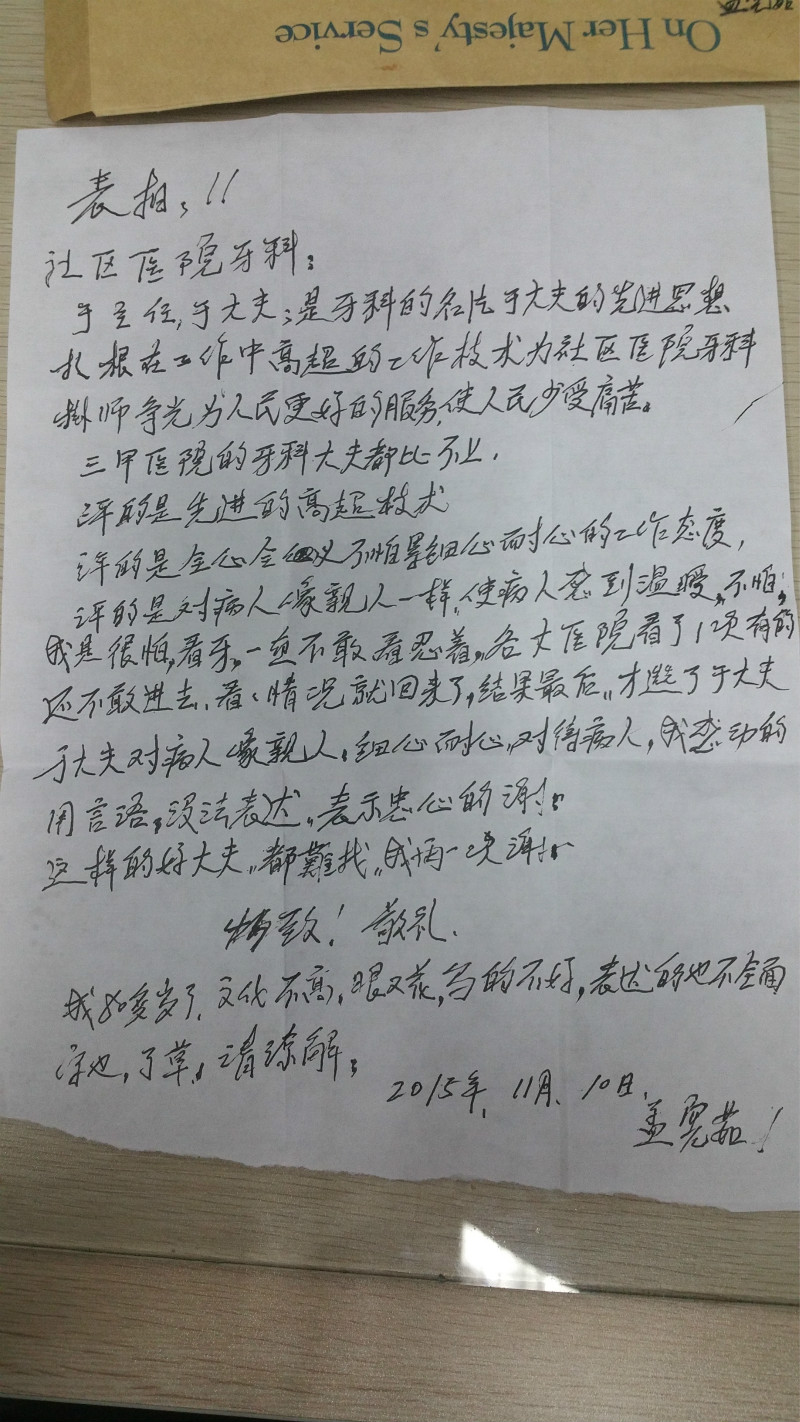 On Her Majesty's Service
表扬：!!
社区医院牙科：
于主任，于大夫：是牙科的名片于大夫的先进思想
扎根在工作中高超的工作技术为社区医院牙科
争光为人民更好的服务，使人民少受痛苦。
三甲医院的牙科大夫都比不上，
评的是先进的高超技术
评的是全心全 不怕累细心耐心的工作态度，
评的是对病人像親人一样，使病人感到温暖，不怕，
我是很怕，看牙，一直不敢看忍着，各大医院看了 次有的
还不敢进去，看看情况就回来了，结果最后，才选了于大夫
于大夫对病人像親人，细心耐心，对待病人，我感动的
用言语，没法表达，表示忠心的谢谢
这样的好大夫，都難找，我再一次谢谢
致！敬礼.
我80多岁了，文化不高，眼又花，写的不好，表达的也不全面
字也，了草，请谅解，
2015年，11月，10日，
孟 茹